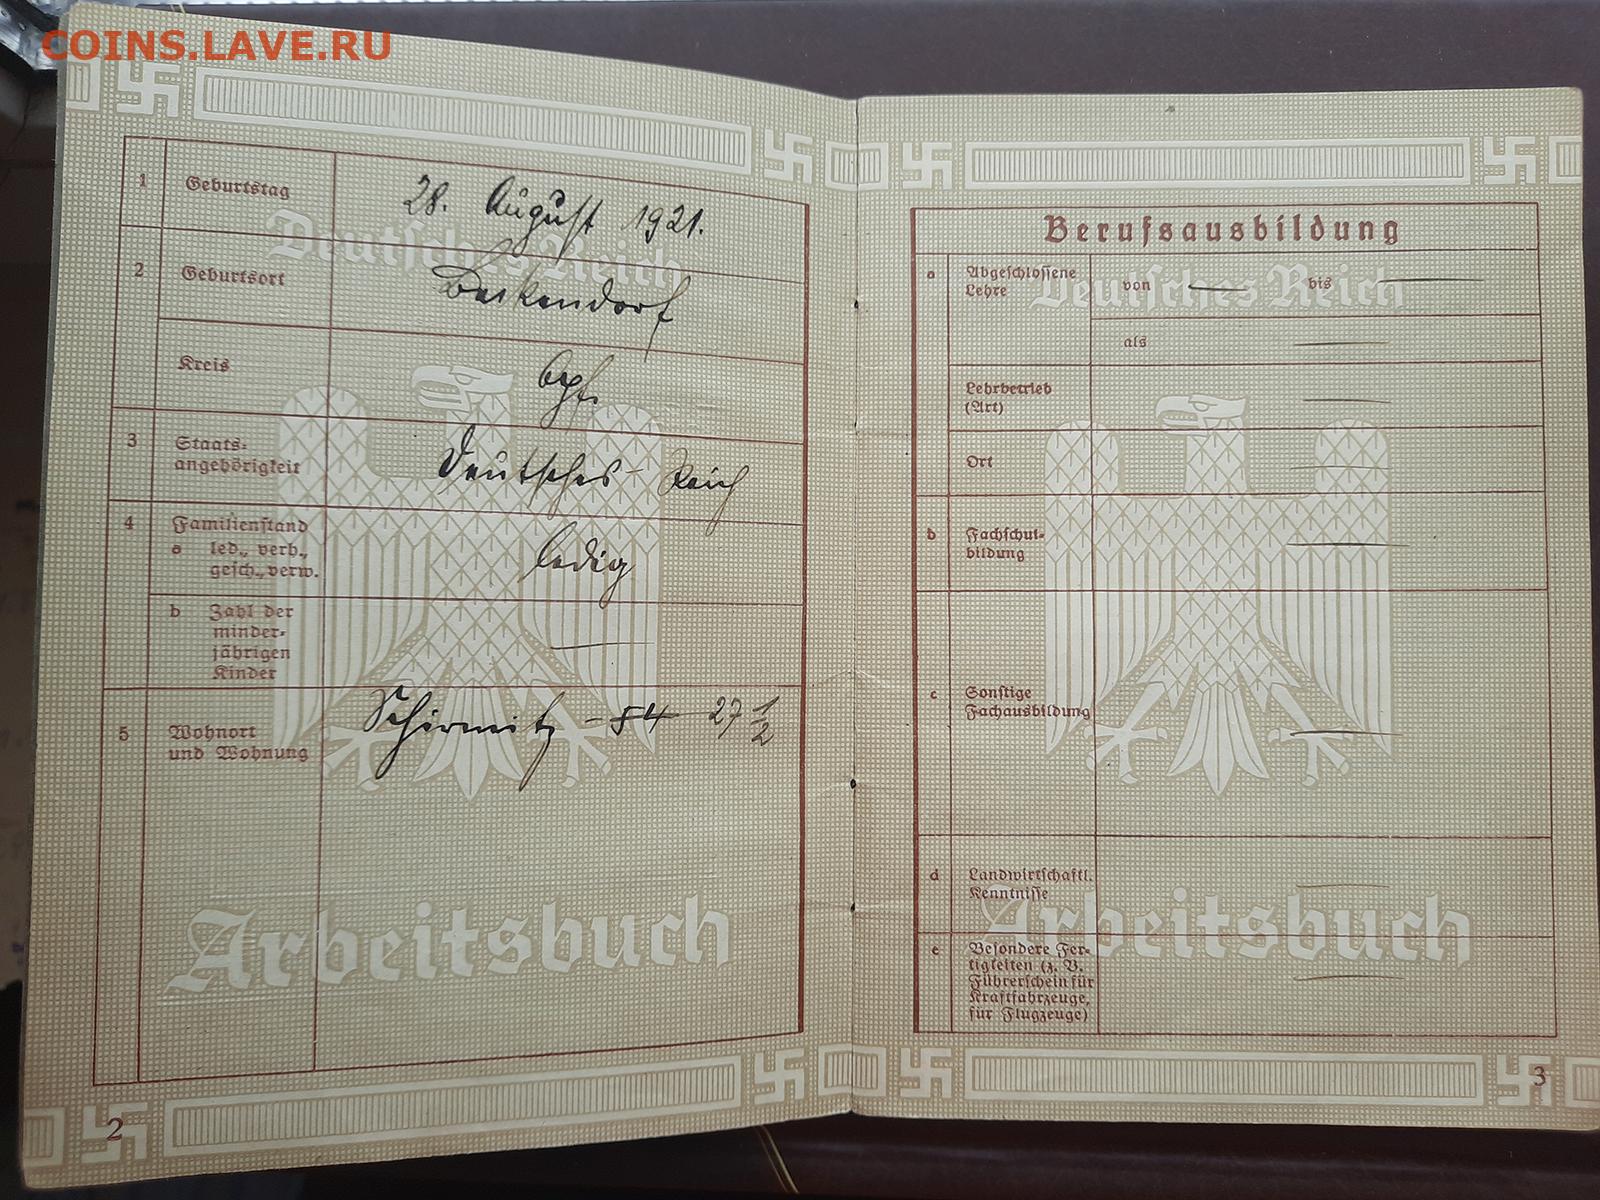 COINS.LAVE.RU
1 Geburtstag 28. August 1921.
Deutsches Reich
2 Geburtsort
Kreis
3 Staats-
angehörigkeit Deutsches Reich
4 Familienstand
a led., verb.,
gesch., verw. ledig
b Zahl der
minder-
jährigen
Kinder —
5 Wohnort
und Wohnung Schirmitz - 54 27 1/2
Arbeitsbuch
2
Berufsausbildung
a Abgeschlossene
Lehre von — bis —
Deutsches Reich
als —
Lehrbetrieb
(Art) —
Ort —
b Fachschul-
bildung —
c Sonstige
Fachausbildung —
d Landwirtschaftl.
Kenntnisse —
Arbeitsbuch
e Besondere Fer-
tigkeiten (z. B.
Führerschein für
Kraftfahrzeuge,
für Flugzeuge) —
3